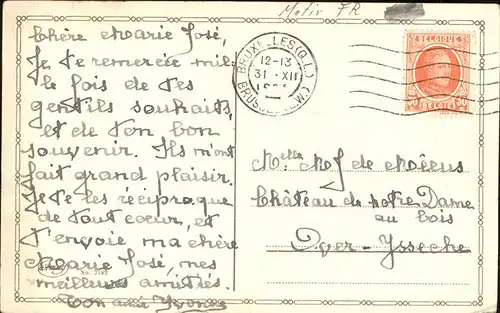 Motiv FR
Chère Marie José,
Je te remercie mil-
le fois de tes
gentils souhaits,
et de ton bon
souvenir. Ils m'ont
fait grand plaisir.
Je te les réciproque
de tout coeur, et
t'envoie ma chère
Marie José, mes
meilleures amitiés.
Ton amie Yvonne
No.
BRUXELLES (Q.L.)
12-13
31 XII
BRUSSEL
BELGIQUE
30 30
BELGIE
Melle M J de Moëens
Château de Notre-Dame
au bois
Over-Yssche